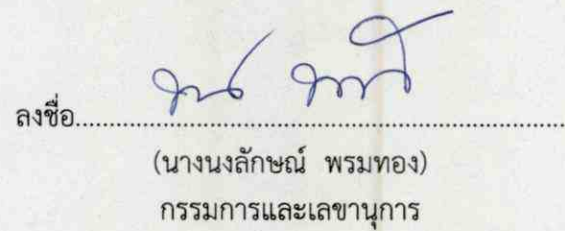 ลงชื่อ..........................................................................
(นางนงลักษณ์ พรมทอง)
กรรมการและเลขานุการ